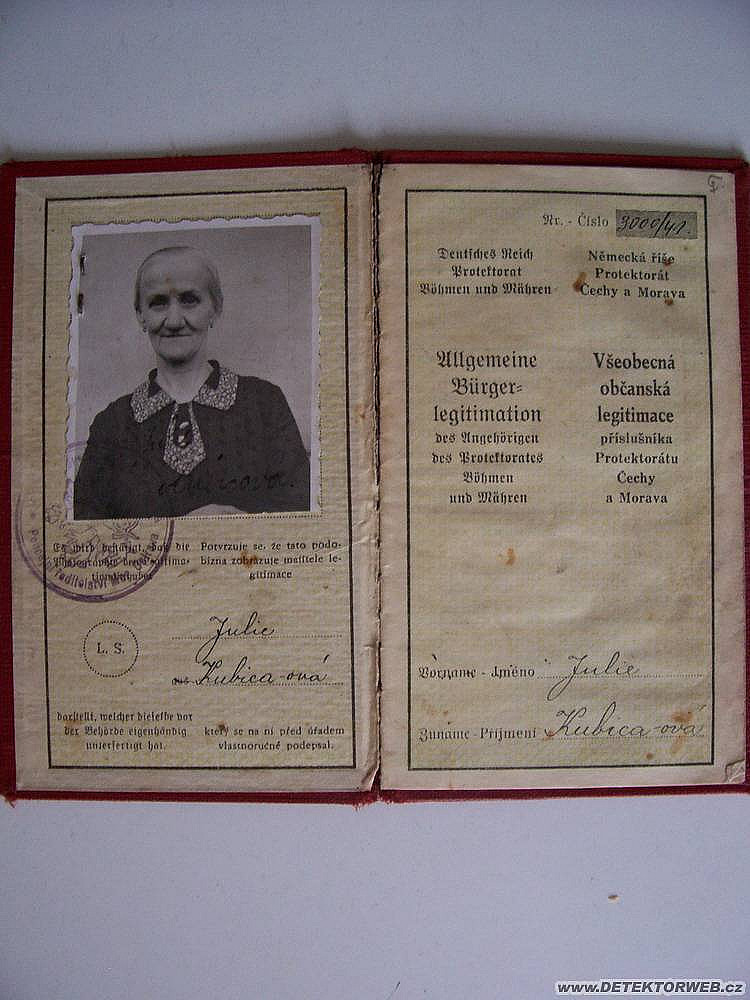 Es wird bestätigt, daß die
Photographie den Legitima-
tionsinhaber
Potvrzuje se, že tato podo-
bizna zobrazuje majitele le-
gitimace
L. S.
Julie
Kubica-ová
darstellt, welcher dieselbe vor
der Behörde eigenhändig
unterfertigt hat.
který se na ní před úřadem
vlastnoručně podepsal.
Nr. - Číslo 3000/41.
Deutsches Reich
Protektorat
Böhmen und Mähren
Německá říše
Protektorát
Čechy a Morava
Allgemeine
Bürger-
legitimation
des Angehörigen
des Protektorates
Böhmen
und Mähren
Všeobecná
občanská
legitimace
příslušníka
Protektorátu
Čechy
a Morava
Vorname - Jméno Julie
Zuname - Příjmení Kubica-ová
www.DETEKTORWEB.cz